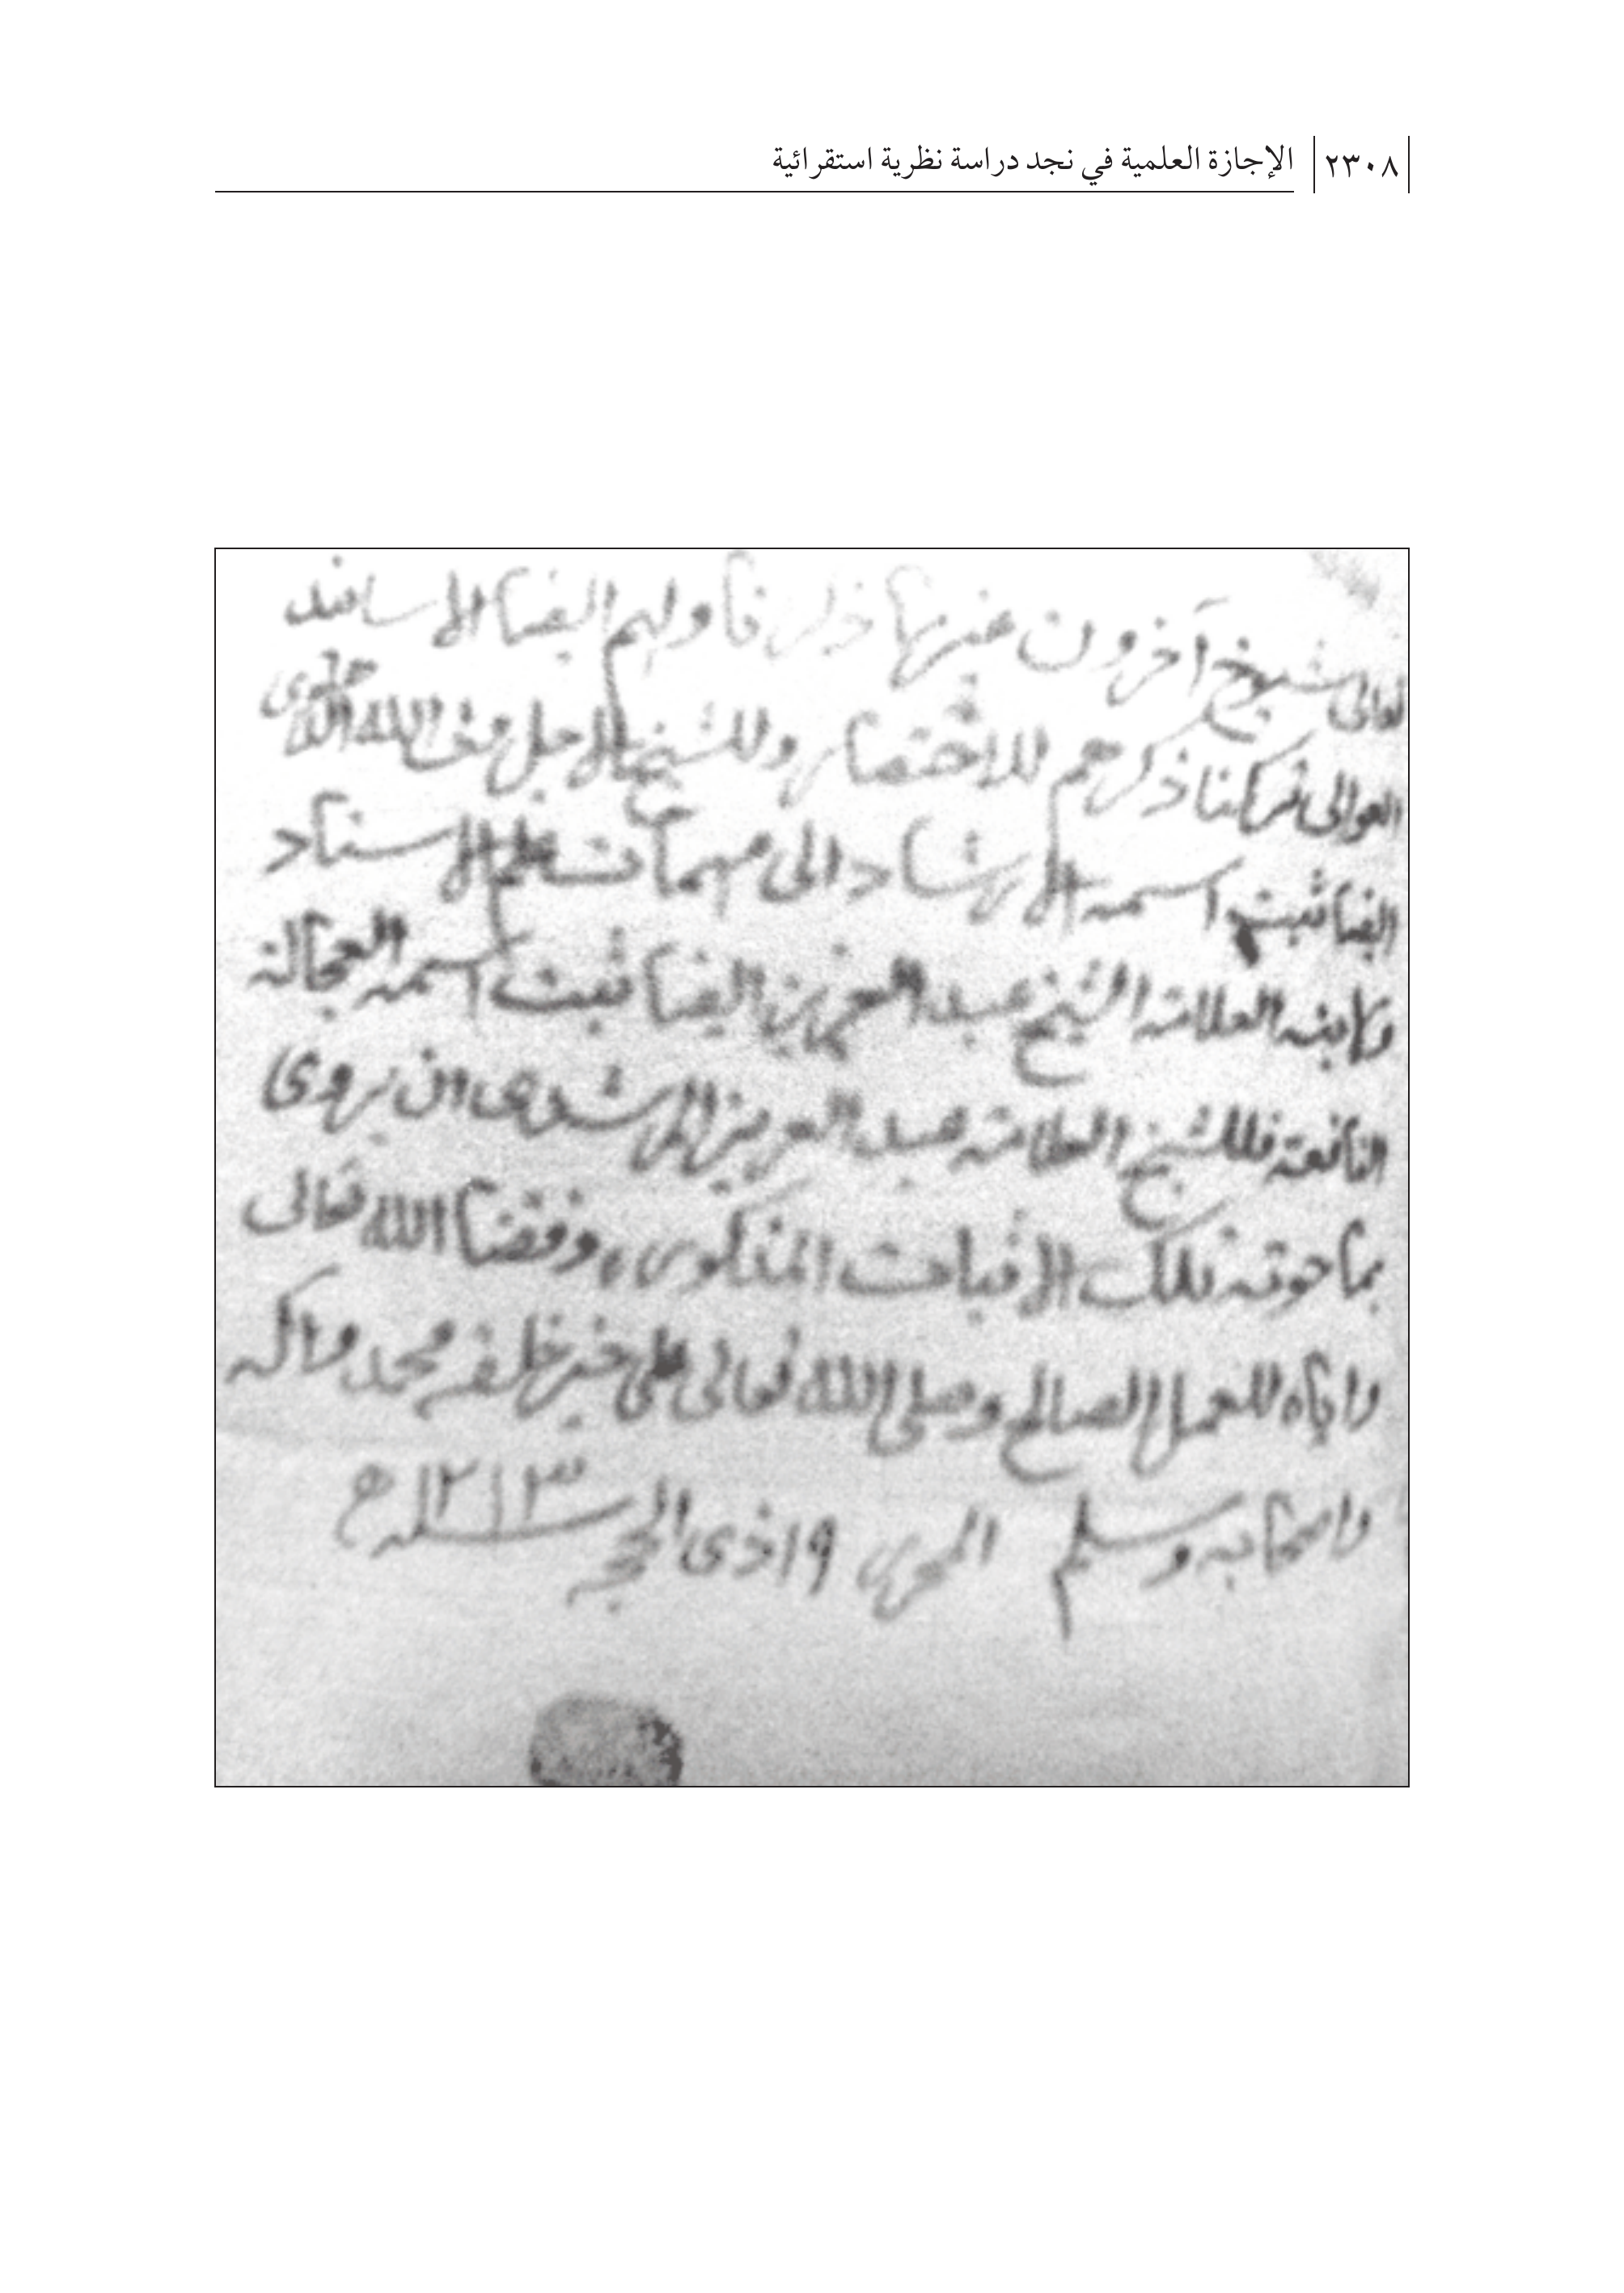 ٢٣٠٨ الإجازة العلمية في نجد دراسة نظرية استقرائية
تعالى شيوخ آخرون غيرها ولهم ايضا الاسانيد
العوالى تركنا ذكرهم للاختصار وللشيخ الاجل ولى الله الدهلوى
ايضا ثبت اسمه الارشاد الى مهمات علم الاسناد
ولابنه العلامة الشيخ عبد العزيز ايضا ثبت اسمه العجالة
النافعة فللشيخ العلامة عبد العزيز ان يروى
بما حوته تلك الاثبات المذكورة وفقنا الله تعالى
واياه للعمل الصالح وصلى الله تعالى على خير خلقه محمد واله
واصحابه وسلم المحرر ١٩ ذى الحجه سنه